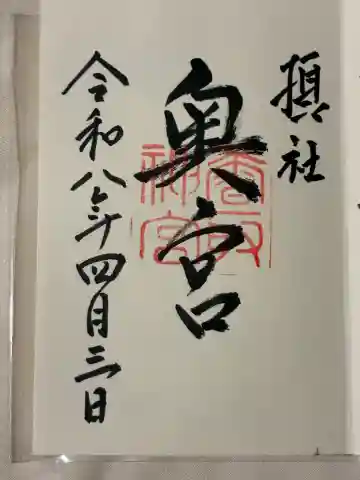 摂社
奥宮
香取神宮
令和八年四月三日